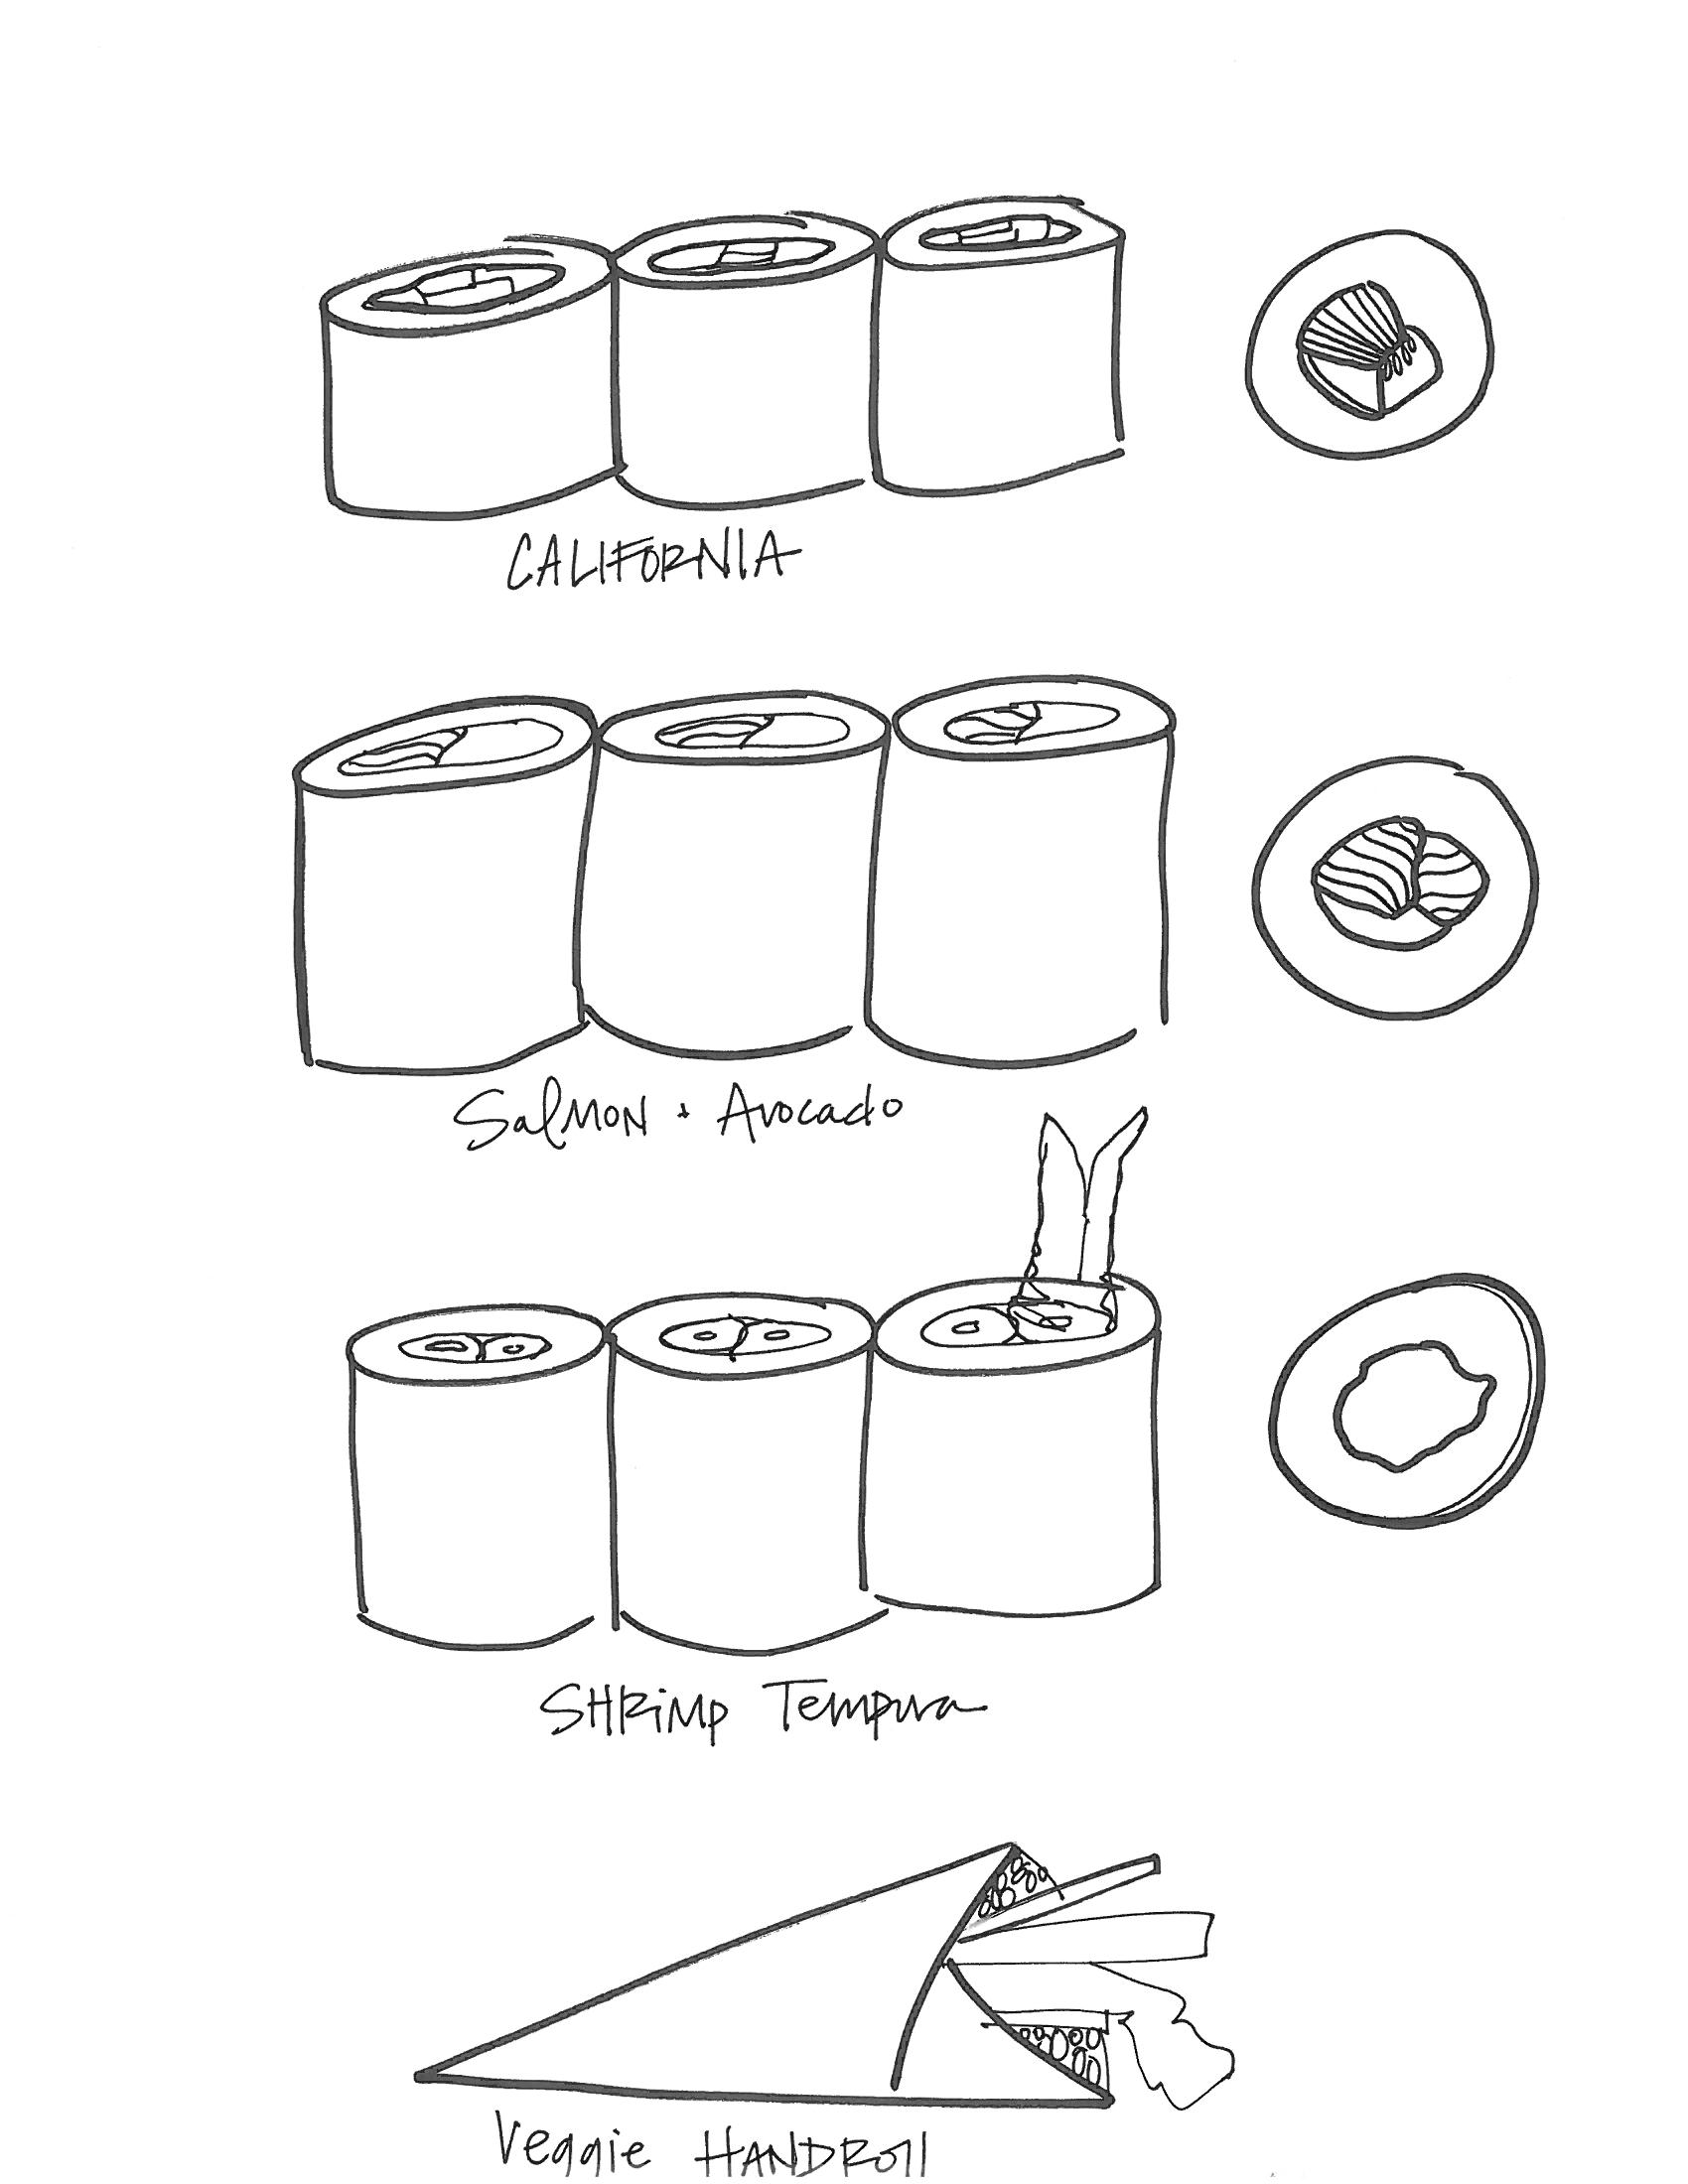 CALIFORNIA
Salmon + Avocado
SHRiMp Tempura
Veggie HANDRoll